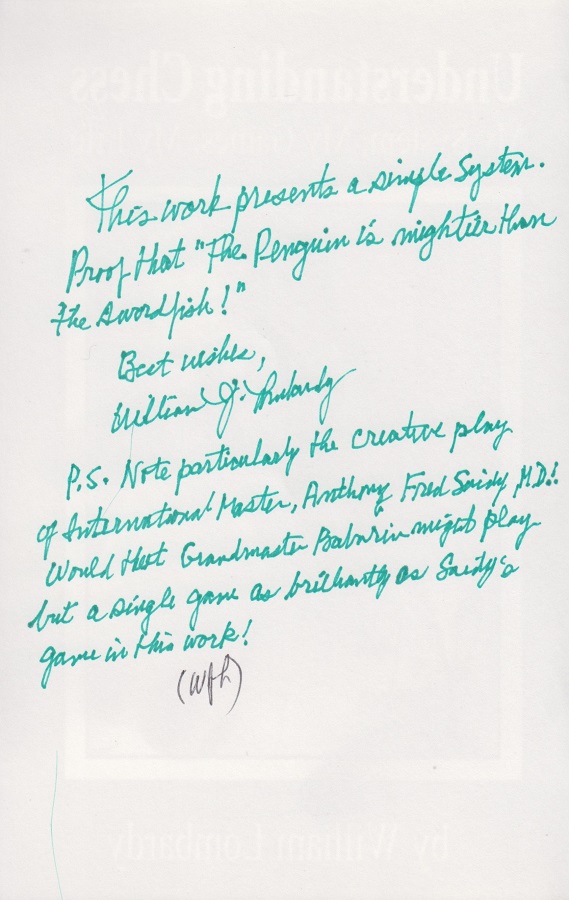 Understanding Chess
This work presents a simple system.
Proof that "The Penguin is mightier than
the swordfish!"
Best wishes,
William J. Lombardy
P.S. Note particularly the creative play
of International Master, Anthony Fred Saidy, M.D.!
Would that Grandmaster Baburin might play
but a single game as brilliantly as Saidy's
game in this work!
by William Lombardy